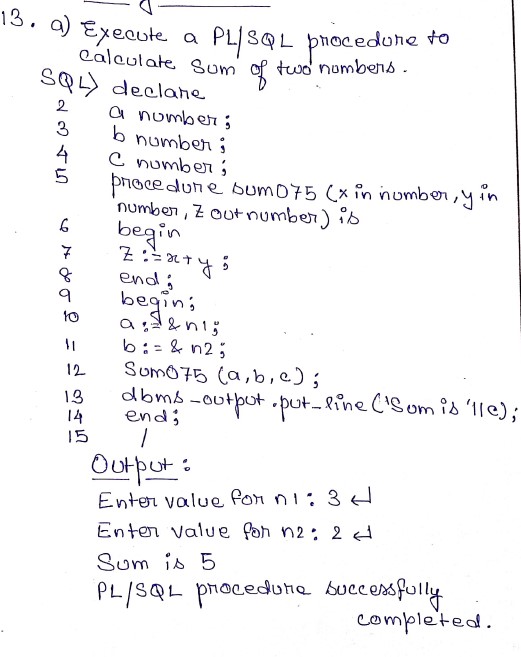 13. a) Execute a PL/SQL procedure to
calculate Sum of two numbers.
SQL> declare
2 a number;
3 b number;
4 c number;
5 procedure sum075 (x in number, y in
number, z out number) is
6 begin
7 z := x+y;
8 end;
9 begin;
10 a := & n1;
11 b := & n2;
12 Sum075 (a,b,c);
13 dbms_output.put_line('Sum is '||c);
14 end;
15 /
Output:
Enter value for n1: 3 ↵
Enter value for n2: 2 ↵
Sum is 5
PL/SQL procedure successfully
completed.